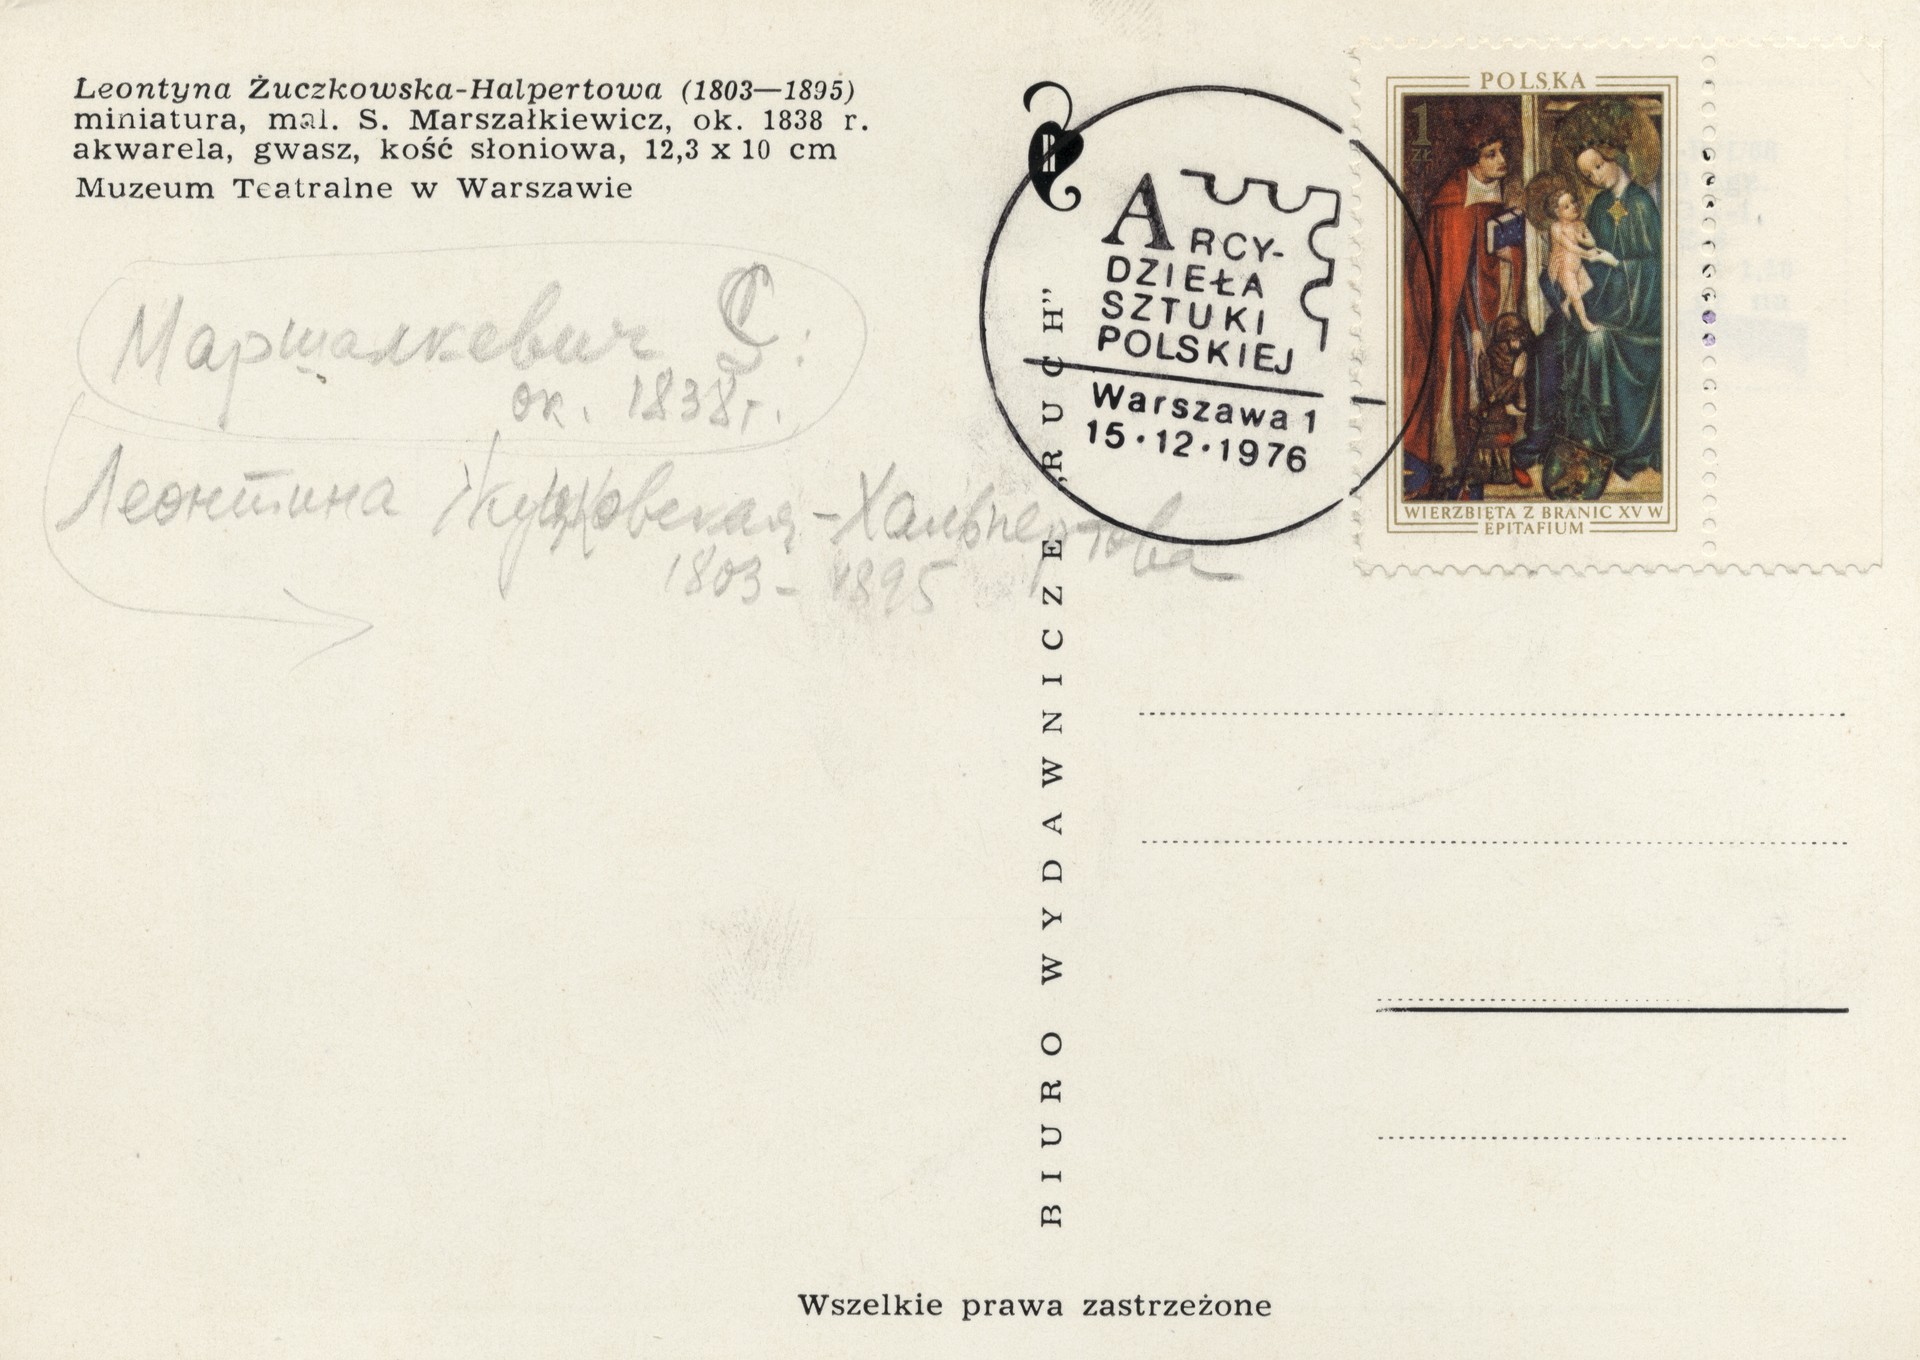 Leontyna Żuczkowska-Halpertowa (1803—1895)
miniatura, mal. S. Marszałkiewicz, ok. 1838 r.
akwarela, gwasz, kość słoniowa, 12,3 x 10 cm
Muzeum Teatralne w Warszawie
Маршалкевич С:
ок. 1838г.
Леонтина Жучковская-Хальпертова
1803-1895
BIURO WYDAWNICZE „RUCH”
R
ARCY-
DZIEŁA
SZTUKI
POLSKIEJ
Warszawa 1
15·12·1976
POLSKA
1
ZŁ
WIERZBIĘTA Z BRANIC XV W
EPITAFIUM
Wszelkie prawa zastrzeżone